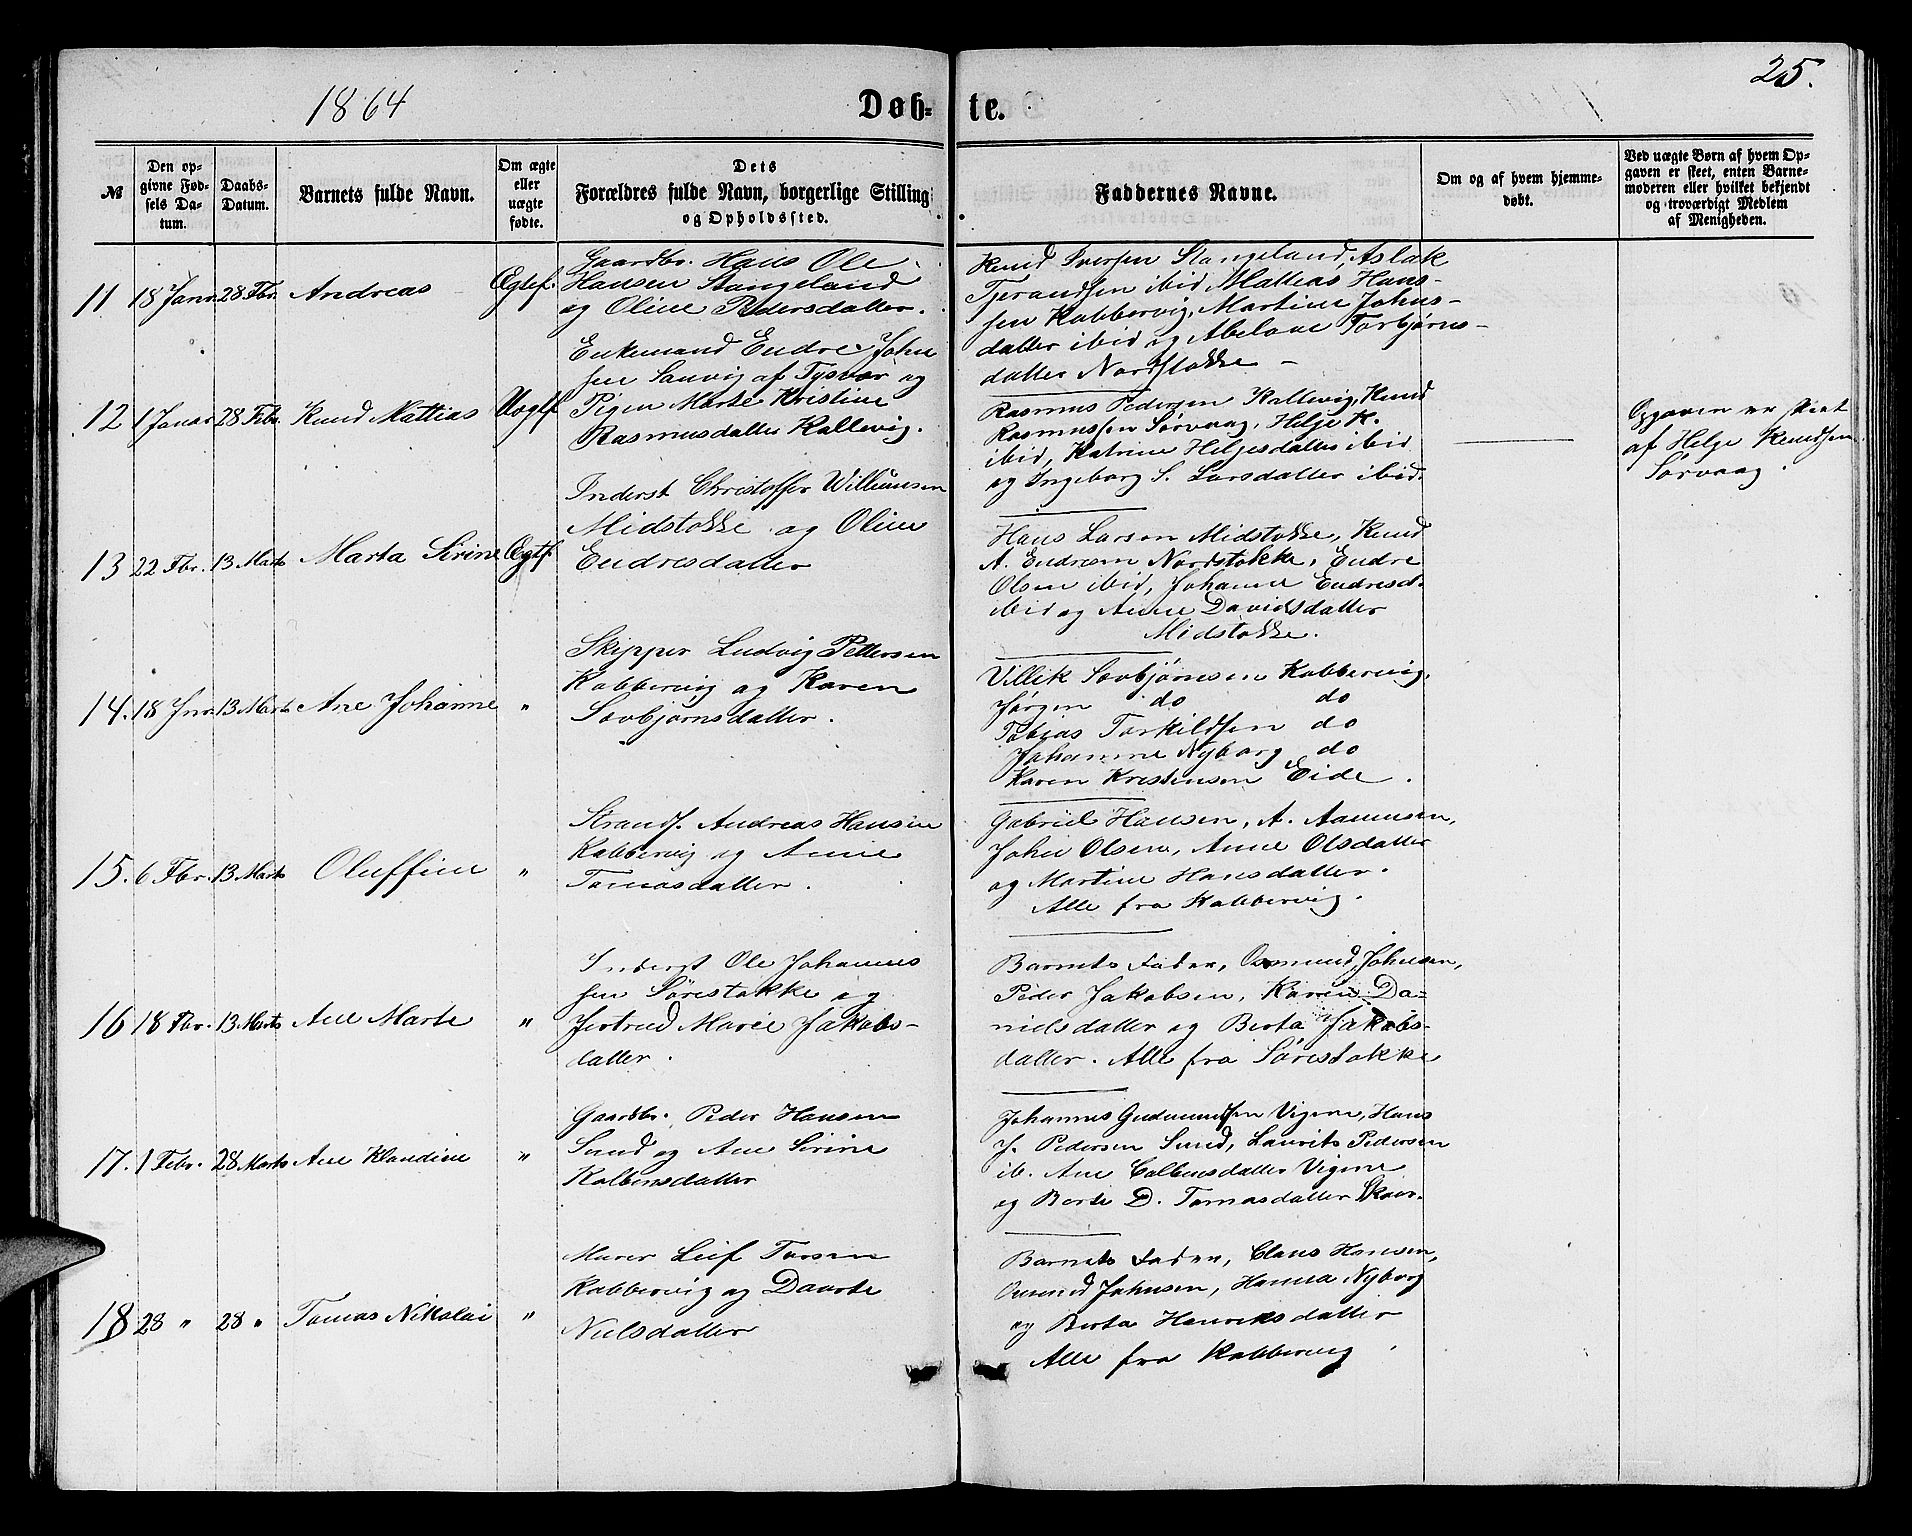 1864
Döb-
te.
25.
№
Den op-
givne Fød-
sels Da-
tum.
Daabs-
Datum.
Barnets fulde Navn.
Om ægte
eller
uægte
fødte.
Dets
Forældres fulde Navn, borgerlige Stilling
og Opholdssted.
Faddernes Navne.
Om og af hvem hjemme-
døbt.
Ved uægte Børn af hvem Op-
gaven er skeet, enten Barne-
moderen eller hvilket bekjendt
og troværdigt Medlem
af Menigheden.
11 18 Janr. 28 Fbr. Andreas Ægtef.
Gaardbr. Hans Ole
Hansen Stangeland
og Oline Pedersdatter.
Knud Iversen Stangeland, Aslak
Tjerandsen ibid Mattias Hans-
sen Kobbervig, Martine Johns-
datter ibid og Abelone Torbjørns-
datter Nordstokke
12 1 Januar 28 Febr. Knud Mattias Uægtf
Enkemand Endre John
sen Sanvig af Tysvær og
Pigen Marte Kristine
Rasmusdatter Kallevig.
Rasmus Pedersen Kallevig, Knud
Rasmussen Sørvaag, Helge K.
ibid, Katrine Helgesdatter ibid
og Ingeborg S. Larsdatter ibid.
Opgaven er skeet
af Helge Knudsen
Sørvaag.
13 22 Fbr. 13 Marts Marta Sirine Ægtf.
Inderst Christoffer Williamsen
Midstokke og Oline
Endresdatter
Hans Larsen Midstokke, Knud
A. Endresen Nordstokke, Endre
Olsen ibid, Johanne Endresd.
ibid og Anne Davidsdatter
Midstokke.
14. 18 Jnr. 13 Marts Ane Johanne "
Skipper Ludvig Pettersen
Kobbervig og Karen
Sovbjørnsdatter.
Villik Sovbjørnsen Kobbervig,
Jørgen do do
Tobias Torkildsen do
Johanne Nyborg do
Karen Kristensen Eide.
15. 6 Fbr. 13 Marts Oluffine "
Strands. Andreas Hansen
Kobbervig og Anne
Tomasdatter.
Gabriel Hansen, A. Aanensen,
John Olsen, Anne Olsdatter
og Martine Hansdatter.
Alle fra Kobbervig.
16 18 Fbr. 13 Marts Ane Marte "
Inderst Ole Johannes
sen Sørestokke og
Jertrud Marie Jakobs-
datter.
Barnets Fader, Osmund Johnsen,
Peder Jakobsen, Karen Da-
nielsdatter og Berta Jakobs-
datter. Alle fra Sørestokke
17. 1 Febr. 28 Marts Ane Klandine "
Gaardbr. Peder Hansen
Sund og Ane Serine
Kolbensdatter
Johannes Gudmundsen Vigene, Hans
J. Pedersen Sund, Laurits Pedersen
ib. Ane Colbensdatter Vigene
og Berte D. Tomasdatter
18 28 " 28 " Tomas Nikolai "
Murer Leif Torsen
Kobbervig og Daarte
Nielsdatter
Barnets Fader, Claus Hansen,
Osmund Johnsen, Hanna Nyborg
og Berta Henriksdatter
Alle fra Kobbervig